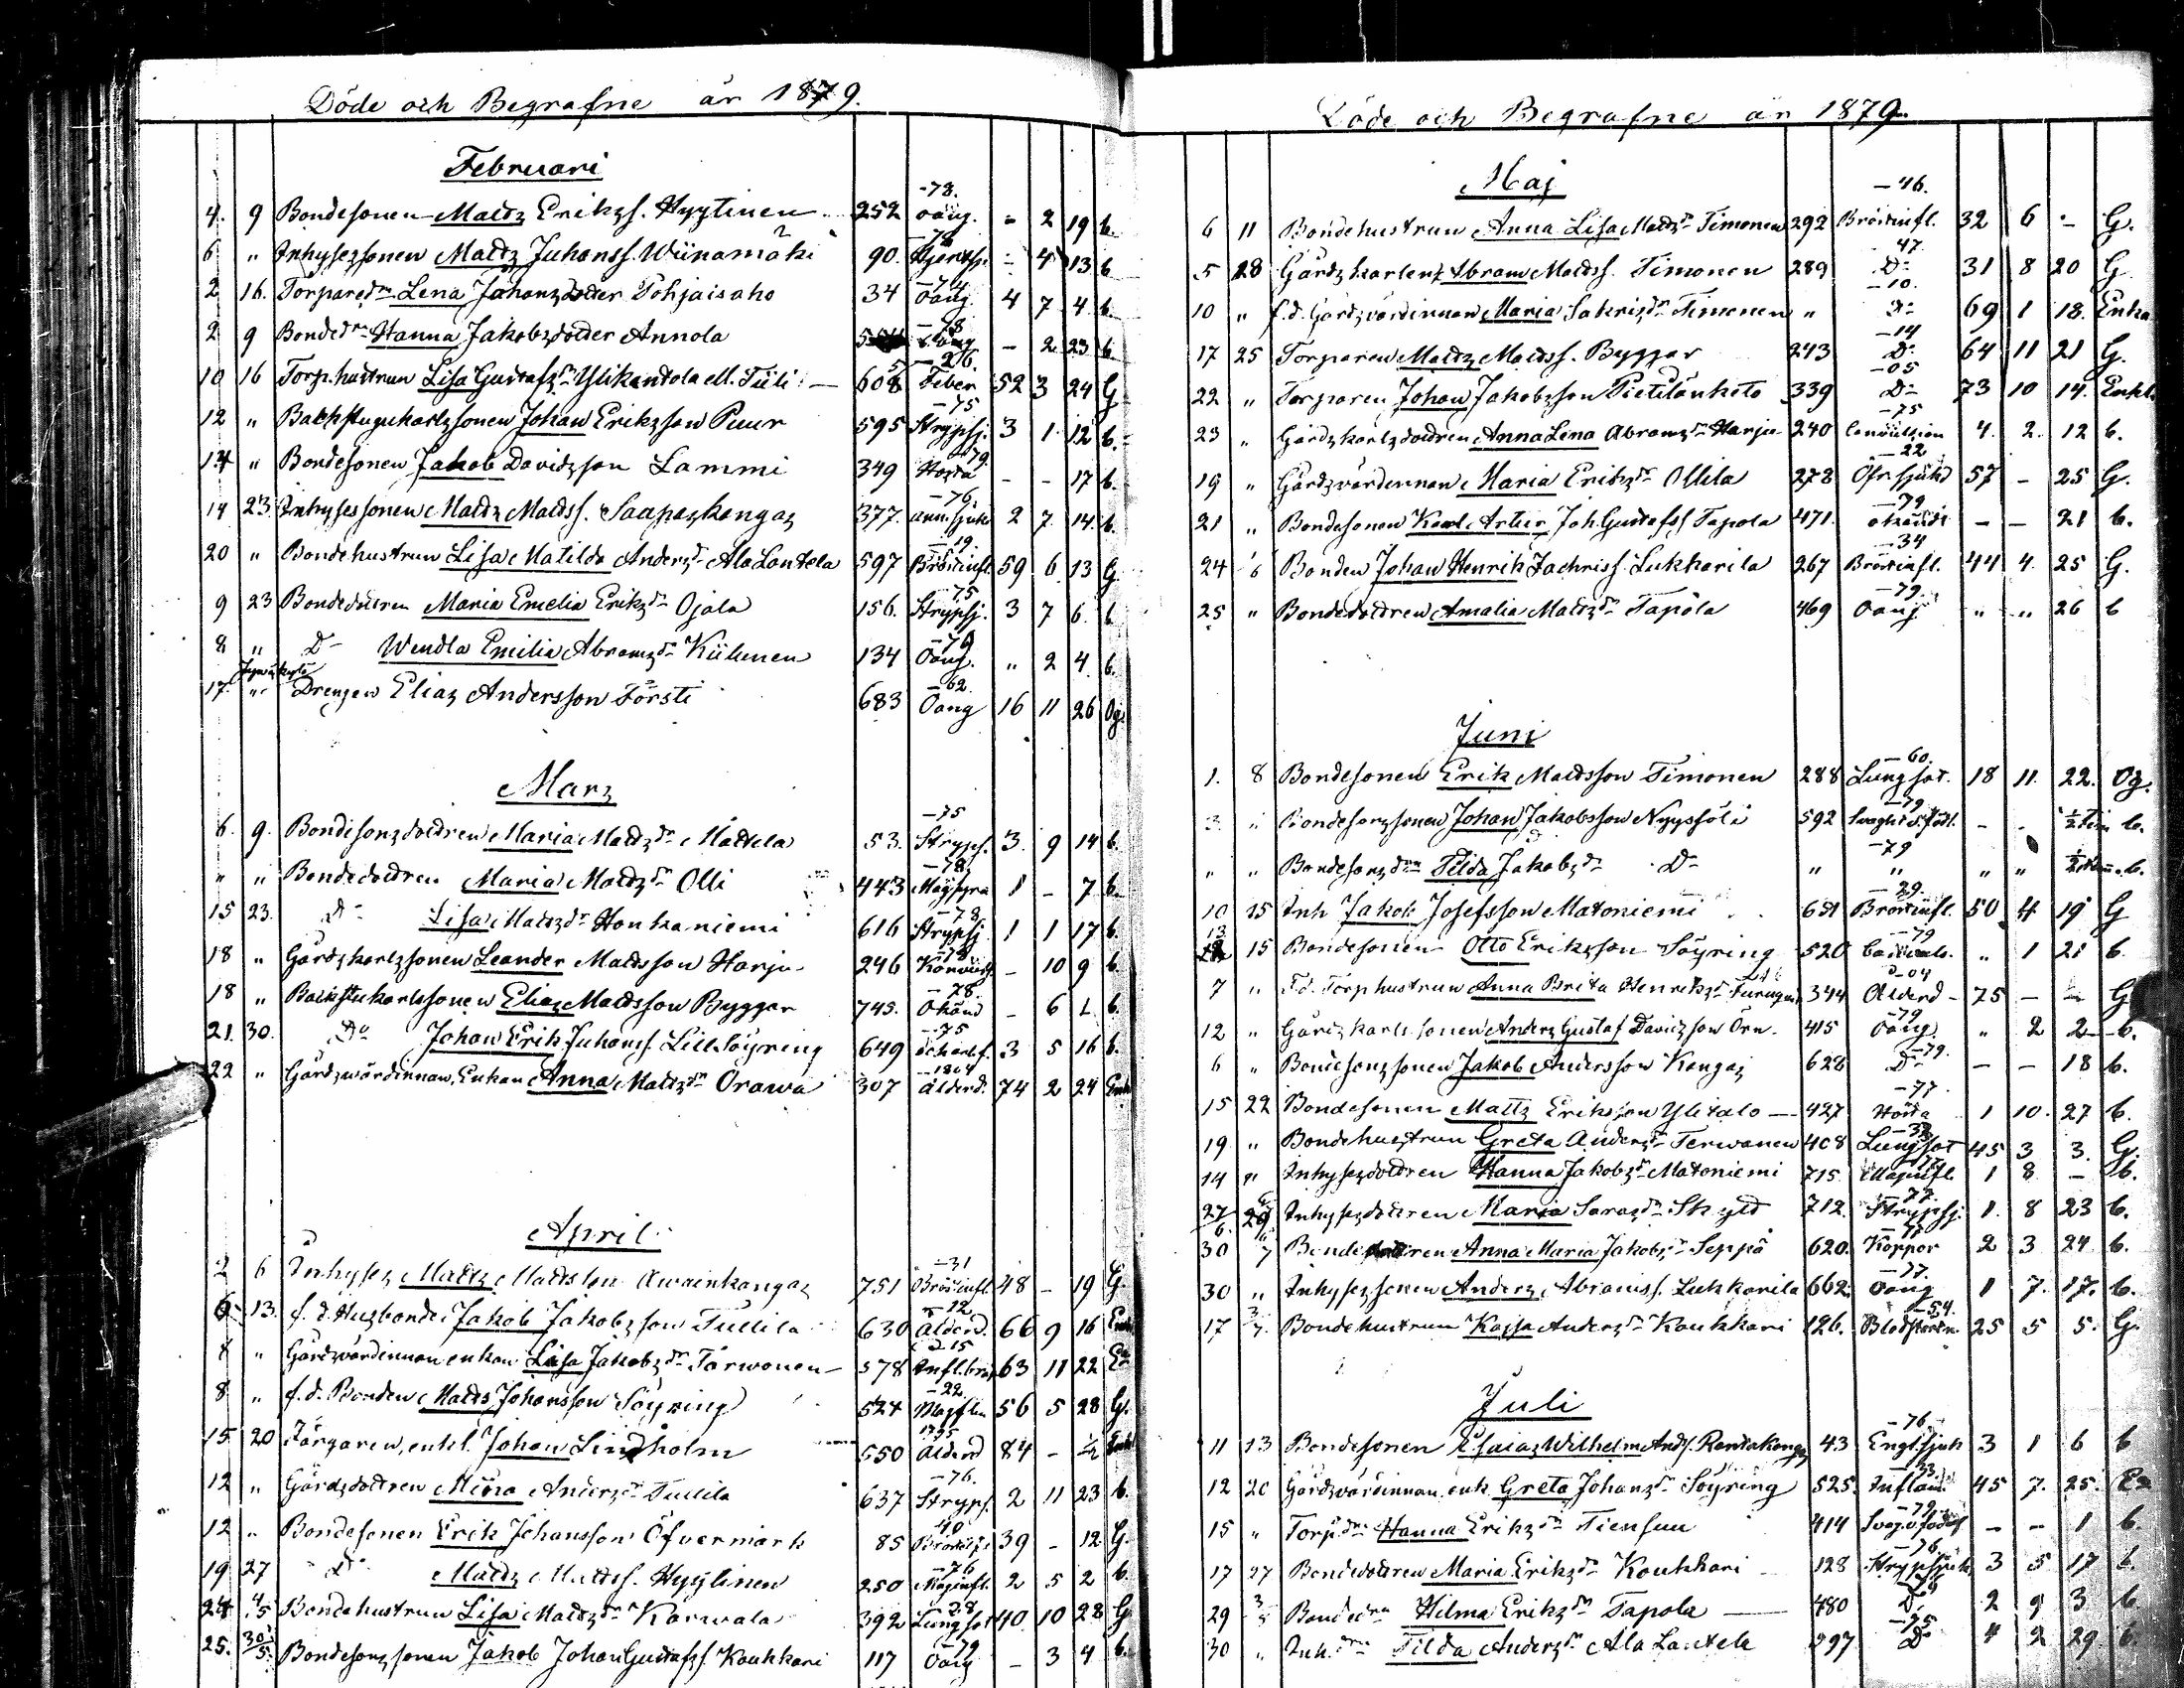 Döde och Begrafne år 1879.
Februari
4. 9 Bondesonen Matts Eriks. Hyytinen 252 -78. oäng. - 2 19 b.
6 " Inhysessonen Matts Juhanss. Wiinamäki 90. -78 - 4 13 b
2 16. Torpared:r Lena Johansdoter Pohjaisaho 34 -74 oäng. 4 7 4 b.
2 9 Bonded:r Hanna Jakobsdotter Annola -78 - 2 23 b
10 16 Torp.hustrun Lisa Gustafsd:r Ylikantola M. Tiili 608 -26. Feber 52 3 24 G.
12 " Backstugukarlssonen Johan Eriksson Puur 595 -75 Strypsj. 3 1 12 b.
14 " Bondesonen Jakob Davidsson Lammi 349 -79 Hosta - - 17 b.
14 23. Inhysessonen Matts Matss. Saapaskangas 377. -76. ann.sjukd 2 7 14. b.
20 " Bondehustrun Lisa Matilda Andersd:r Ala Lantela 597 -19. Bröstinfl. 59 6 13 G.
9 23 Bondedottren Maria Emelia Eriksd:r Ojala 156. -75 Strypsj. 3 7 6. b
8 " D:o Wendla Emilia Abramsd:r Kiihnen 134 -79 Oäng. " 2 4 b.
17. " Drengen Elias Andersson Försti 683 -62. Oäng 16 11 26 Og.
Mars
6. 9. Bondesonsdottren Maria Mattsd:r Mattela 53. -75 Stryps. 3. 9 14 b.
" " Bondedottren Maria Mattsd:r Olli 443 -78. 1 - 7 b.
15 23. D:o Lisa Mattsd:r Honkaniemi 616 -78 Strypsj 1 1 17 b.
18 " Gårdskarlssonen Leander Matsson Harju 246 -78 - 10 9 b.
18 " Backstukarlssonen Elias Matsson Byggar 745. -78. Okänd - 6 b.
21. 30. D:o Johan Erik Juhans. Lill Söyring 649 -75 3 5 16 b.
22 " Gårdswärdinnan, Enkan Anna Mattsd:r Orawa 307 -1804 ålderd. 74 2 24 Enk
April
2 6 Inhyses Matts Mattsson Awainkangas 751 -31 Bröstinfl. 48 - 19 G.
6 13. f. d. Husbonde Jakob Jakobsson Tullila 630 -12 ålderd. 66 9 16 Enk
" Gårdsvärdinnan enkan Lisa Jakobsd:r Tärwonen 578 -15 63 11 22 E:a
8 " f. d. Bonden Matts Johansson Söyring 524 -22. 56 5 28 G.
15 20 Färgaren, enkl. Johan Lindholm 550 1795 ålderd 84 - ½ Enkl
12 " Gårdsdottren Miina Andersd:r Tullila 637 -76. Stryps. 2 11 23 b.
12 " Bondesonen Erik Johansson Öfvermark 85 -40 39 - 12 G.
19 27 D:o Matts Mattss. Hyytinen 250 -76 Maginfl. 2 5 2 b.
24 4/5 Bondehustrun Lisa Mattsd:r Karwala 392 -38 Lungsot 40 10 28 G
25. Bondesonssonen Jakob Johan Gustafss. Koukkari 117 -79 Oäng - 3 4 b.
Döde och Begrafne år 1879.
Maj
6 11 Bondehustrun Anna Lisa Mattsd:r Timonen 292 -46. Bröstinfl. 32 6 - G.
5 28 Gårdskarlen Abram Matss. Timonen 289 -47. D:o 31 8 20 G
10 " f.d. Gårdsvärdinnan Maria Sakrisd:r Timonen " -10. D:o 69 1 18. Enka
17 25 Torparen Matts Matss. Byggar 243 -14 D:o 64 11 21 G.
22 " Torparen Johan Jakobsson Pietilänketo 339 -05 D:o 73 10 14. Enkl.
23 " Gårdskarlsdottren Anna Lena Abramsd:r Harju 240 -75 Convultsion 4. 2. 12 b.
19 " Gårdsvärdinnan Maria Eriksd:r Ollila 278 -22 57 - 25 G.
21 " Bondesonen Karl Artur Joh. Gustafss Tapola 471. -79 okändt - - 21 b.
24 6 Bonden Johan Henrik Zachriss. Lukkarila 267 -34 Bröstinfl. 44 4 25 G.
25 " Bondedottren Amalia Mattsd:r Tapola 469 -79. Oäng " " 26 b
Juni
1. 8 Bondesonen Erik Matsson Timonen 288 -60. Lungsot. 18 11. 22. Og.
3 " Bondesonssonen Johan Jakobsson Nyyssölä 592 -79 - - ½ Tim b.
" " Bondesonsd:r Tilda Jakobsd:r D:o " -79 " " " b.
10 15 Inh Jakob Josefsson Matoniemi 651 -29. Bröstinfl. 50 4 19 G
13 15 Bondesonen Otto Eriksson Söyring 520 -79 " 1 21 b.
7 " F.d. Torphustrun Anna Brita Henriksd:r 344 -04 Ålderd 75 - - G
12 " Gårdskarlssonen Anders Gustaf Davidsson Örn 415 -79 Oäng. " 2 2 b.
6 " Bondesonssonen Jakob Andersson Kangas 628 -79. D:o - - 18 b.
15 22 Bondesonen Matts Eriksson Ylitalo 427 -77. Hosta 1 10. 27 b.
19 " Bondehustrun Greta Andersd:r Terwonen 408 -33 Lungsot 45 3 3. G.
14 " Inhysesdottren Hanna Jakobsd:r Matoniemi 715. -77 Maginfl. 1 8 - b.
27/6. 29 Inhysesdottren Maria Sarasd:r Skyld 712. -77. Strypsj. 1. 8 23 b.
30 Bondedottren Anna Maria Jakobsd:r Seppä 620. -77 Koppor 2 3 24 b.
30 " Inhysessonen Anders Abramss. Lukkarila 662. -77. oäng 1 7. 17. b.
17 Bondehustrun Kajsa Andersd:r Koukkari 126. -54. 25 5 5. G.
Juli
11 13 Bondesonen Esaias Wilhelm Ands. Rantakangas 43 -76 Engl.sjuk 3 1 6 b
12 20 Gårdsvärdinnan enk. Greta Johansd:r Söyring 525. -33. Inflam. 45 7. 25. Ea
15 " Torp.d:r Hanna Eriksd:r Tiensuu 414 -79 - - 1 b.
17 27 Bondedottren Maria Eriksd:r Koukkari 128 -76 Strypsjuk 3 5 17 b.
29 3/8 Bonded:r Hilma Eriksd:r Tapola 480 D:o 2 9 3 b
30 " Inh.d:r Tilda Andersd:r Ala Lantela 597 -75 D:o 4 2 29 b.